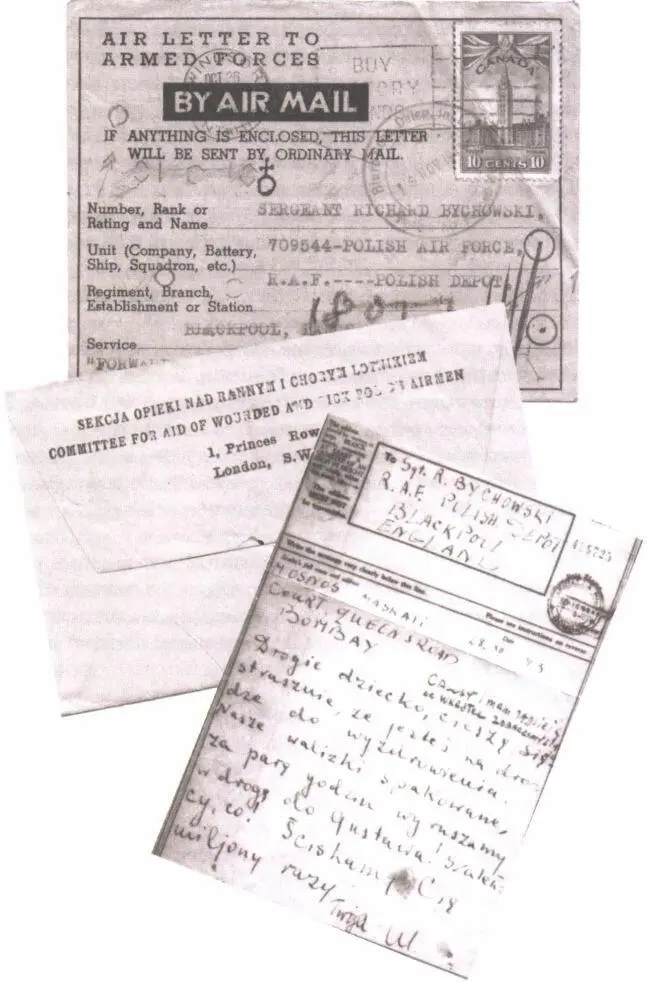 AIR LETTER TO
ARMED FORCES
BY AIR MAIL
IF ANYTHING IS ENCLOSED, THIS LETTER
WILL BE SENT BY ORDINARY MAIL.
OCT 26
BUY
CANADA
10 CENTS 10
Number, Rank or
Rating and Name
SERGEANT RICHARD BYCHOWSKI,
Unit (Company, Battery,
Ship, Squadron, etc.)
709544-POLISH AIR FORCE,
Regiment, Branch,
Establishment or Station
R.A.F.----POLISH DEPOT
BLACKPOOL,
Service
"FORWARD
SEKCJA OPIEKI NAD RANNYM I CHORYM LOTNIKIEM
COMMITTEE FOR AID OF WOUNDED AND SICK POLISH AIRMEN
1, Princes Row
London, S.W.
To Sgt. R. BYCHOWSKI
R.A.F. POLISH DEPOT
BLACKPOOL
ENGLAND
Write the message very clearly below this line.
Please see instructions on reverse
Date
MASKATI
COURT QUEENSROAD
BOMBAY
Drogie dziecko, cieszę się
strasznie, że jesteś na dro-
dze do wyzdrowienia.
Nasze walizki spakowane,
za parę godzin wyruszamy
w drogę do Gustawa!
cy, co! Ściskamy Cię
miljony razy
Twoja M.